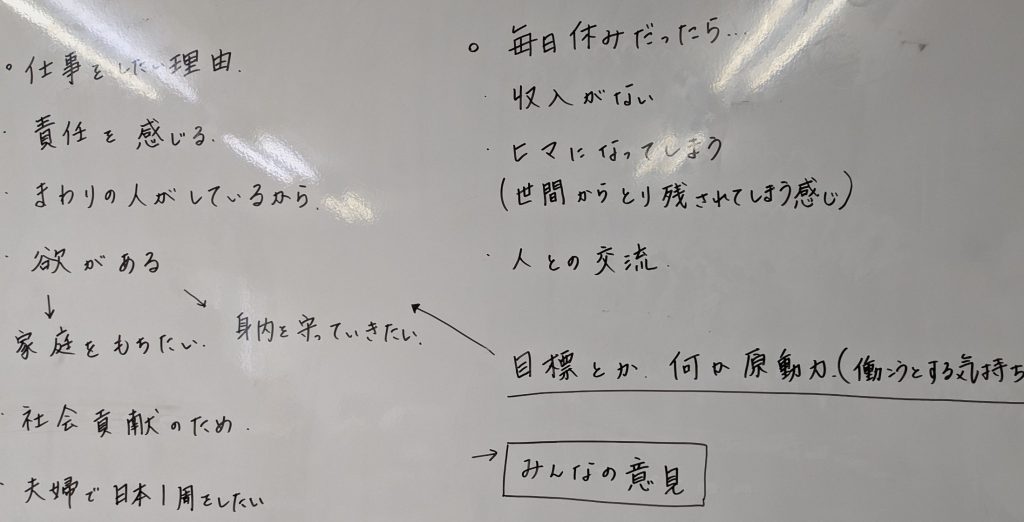 。仕事をしたい理由.
・責任を感じる.
・まわりの人がしているから.
・欲がある
↓ ↘
家庭をもちたい. 身内を守っていきたい.
・社会貢献のため.
・夫婦で日本1周をしたい
。毎日休みだったら...
・収入がない
・ヒマになってしまう
(世間からとり残されてしまう感じ)
・人との交流.
目標とか. 何か原動力.(働こうとする気持ち
→ みんなの意見